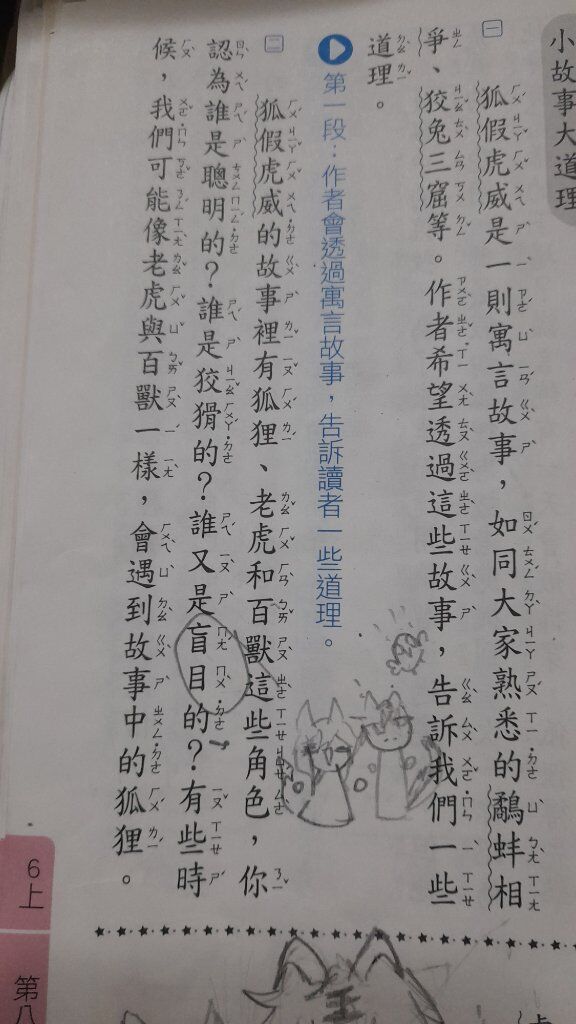 小故事大道理
㊀狐假虎威是一則寓言故事，如同大家熟悉的鷸蚌相
爭、狡兔三窟等。作者希望透過這些故事，告訴我們一些
道理。
第一段：作者會透過寓言故事，告訴讀者一些道理。
㊁狐假虎威的故事裡有狐狸、老虎和百獸這些角色，你
認為誰是聰明的？誰是狡猾的？誰又是盲目的？有些時
候，我們可能像老虎與百獸一樣，會遇到故事中的狐狸。
6上
第八